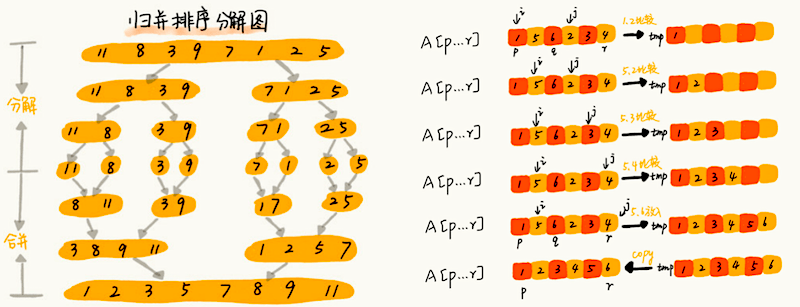 归并排序分解图
11 8 3 9 7 1 2 5
11 8 3 9
7 1 2 5
分解
11 8
3 9
7 1
2 5
11
8
3
9
7
1
2
5
8 11
3 9
1 7
2 5
合并
3 8 9 11
1 2 5 7
1 2 3 5 7 8 9 11
i j
A[p...r] 1 5 6 2 3 4 1.2比较 tmp 1
p q r
i j
A[p...r] 1 5 6 2 3 4 5.2比较 tmp 1 2
i j
A[p...r] 1 5 6 2 3 4 5.3比较 tmp 1 2 3
i j
A[p...r] 1 5 6 2 3 4 5.4比较 tmp 1 2 3 4
i j
A[p...r] 1 5 6 2 3 4 5.6放入 tmp 1 2 3 4 5 6
p q r
A[p...r] 1 2 3 4 5 6 copy tmp 1 2 3 4 5 6
p r